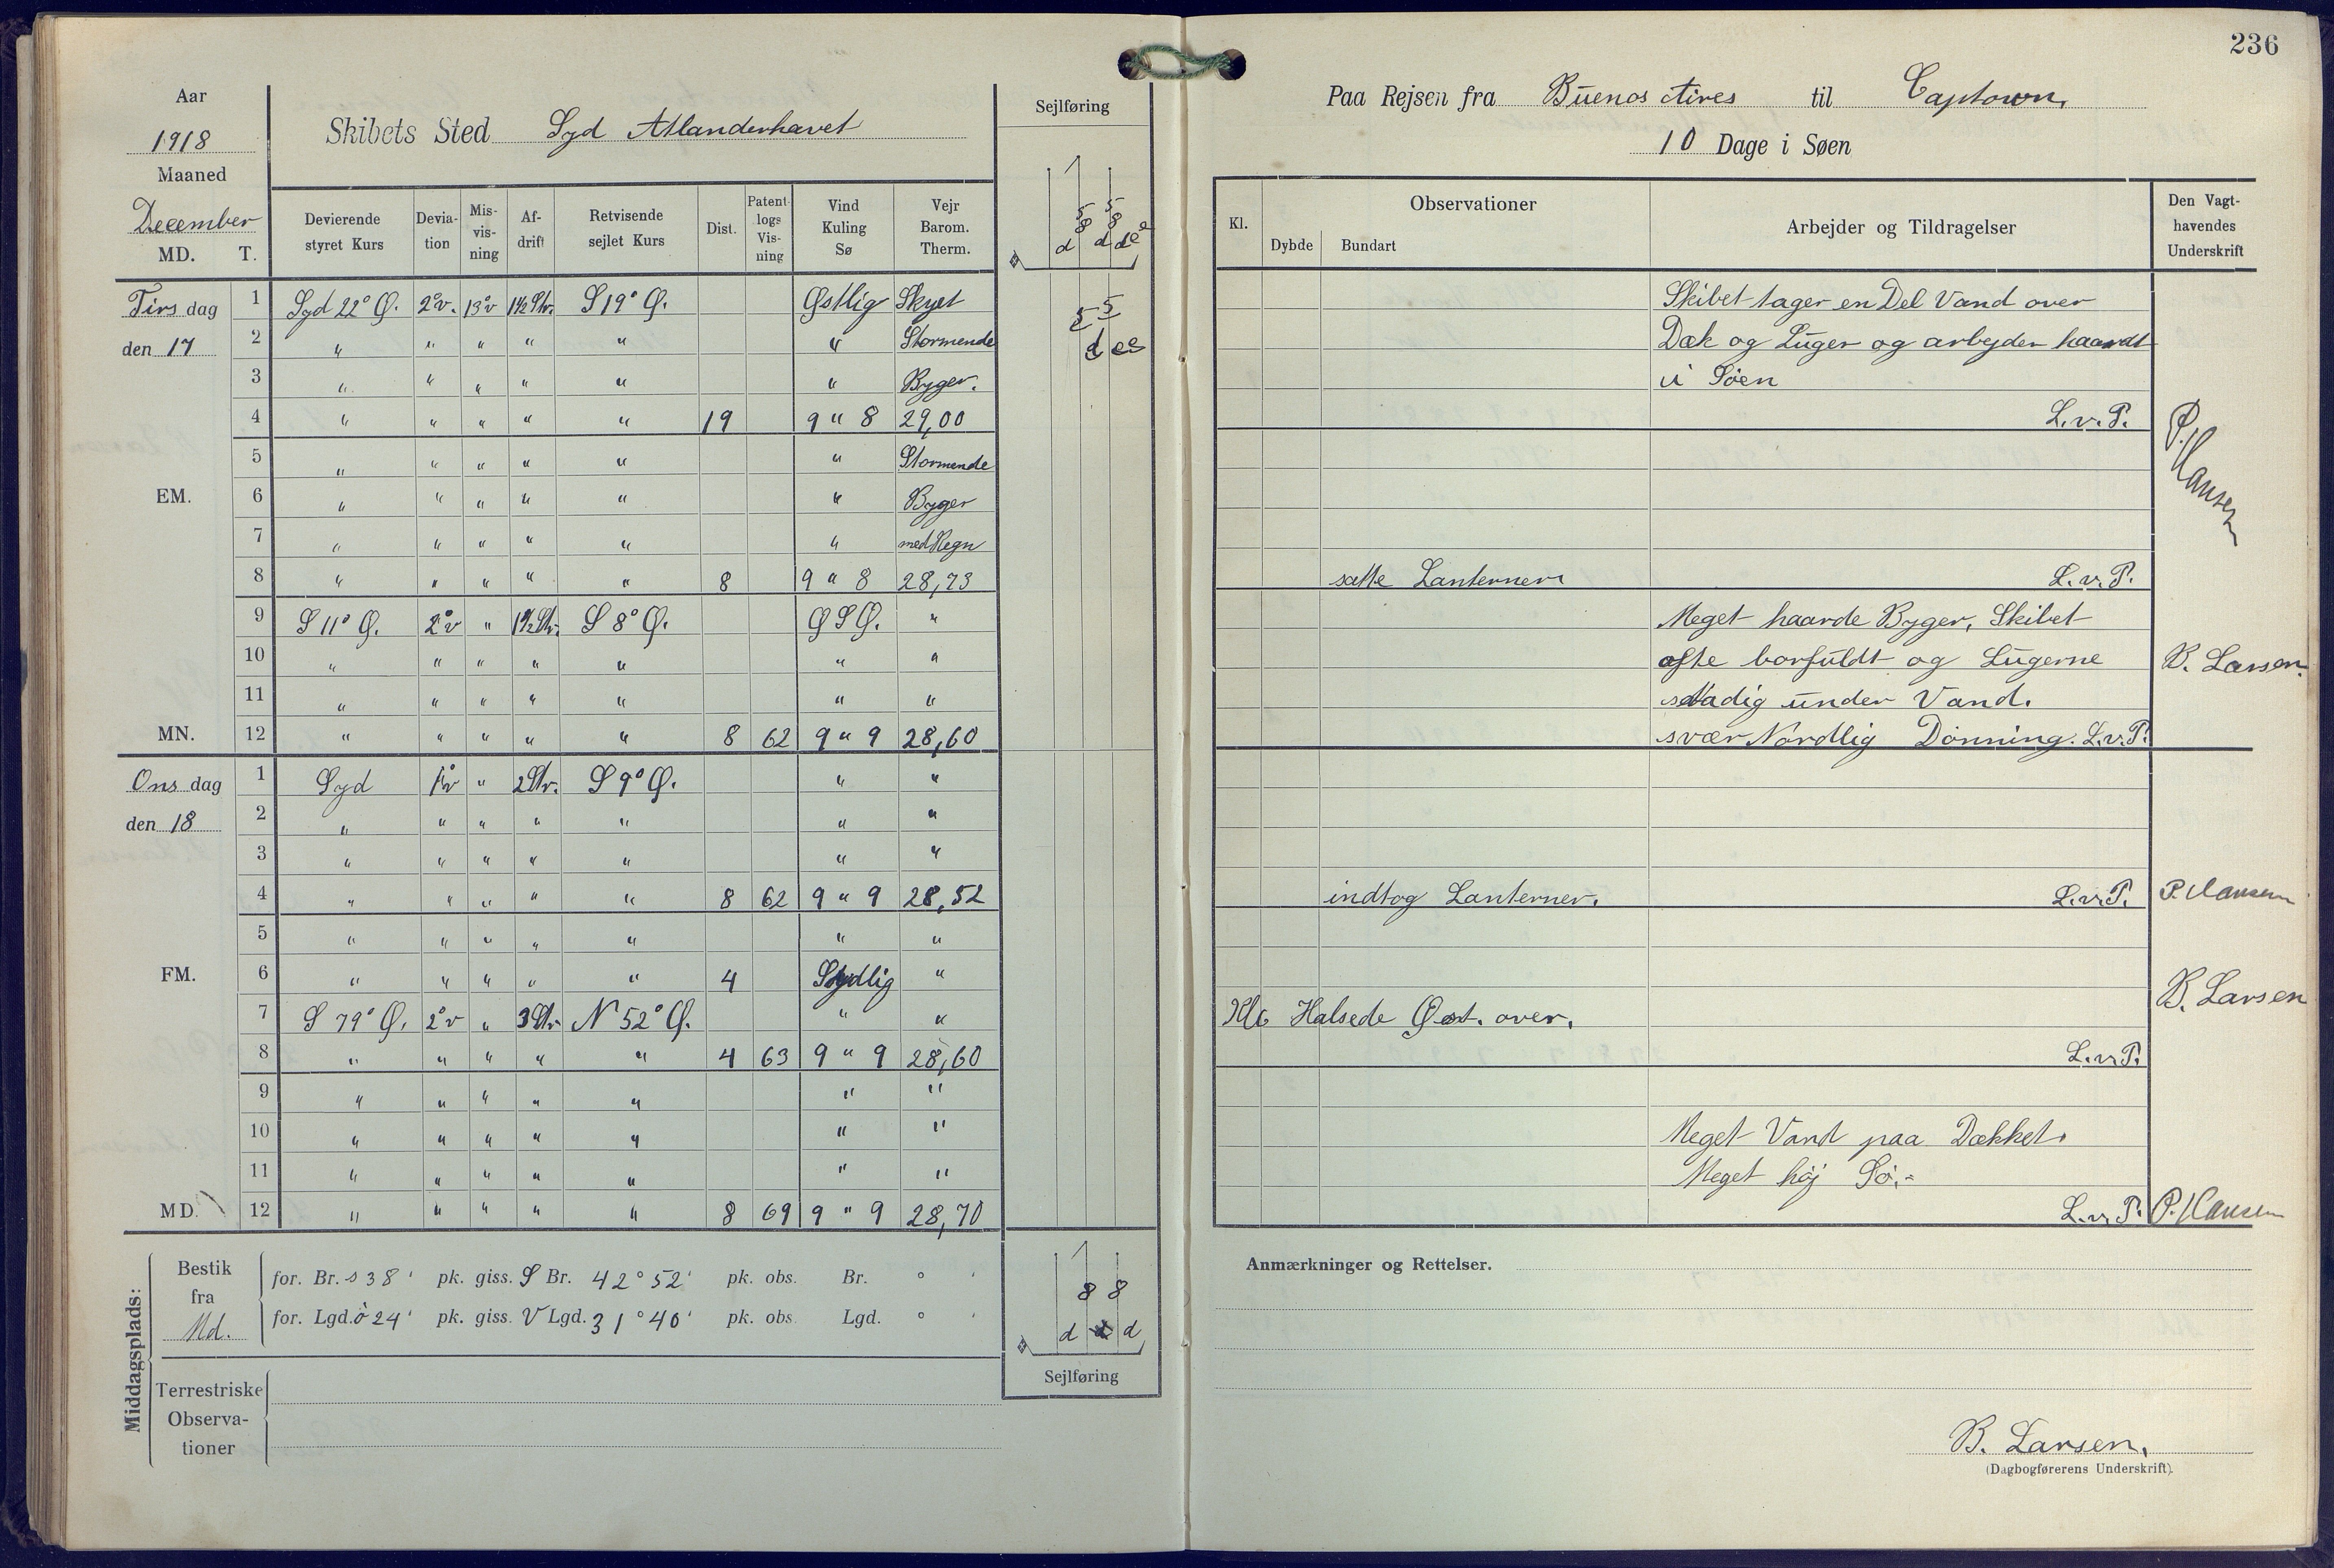 Aar
1918
Maaned
December
MD. T.
Skibets Sted Syd Atlanderhavet
Sejlføring
5 5
8 8
d d d e e
Devierende styret Kurs Devia-tion Mis-vis-ning Af-drift Retvisende sejlet Kurs Dist. Patent-logs Vis-ning Vind Kuling Sø Vejr Barom. Therm.
Tirs dag 1 Syd 22° Ø. 2°v. 13°v 1½ Str. S 19° Ø. Østlig Skyet
5 5
den 17 2 " " " " " " Stormende
d e e
3 " " " " " " Byger.
4 " " " " " 19 9 " 8 29,00
5 " " " " " " Stormende
EM. 6 " " " " " " Byger
7 " " " " " " med Regn
8 " " " " " 8 9 " 8 28,73
9 S 11° Ø. 2°v " 1½ Str. S 8° Ø. ØSØ. "
10 " " " " " " "
11 " " " " " " "
MN. 12 " " " " " 8 62 9 " 9 28,60
Ons dag 1 Syd 1°v " 2 Str. S 9° Ø. " "
den 18 2 " " " " " " "
3 " " " " " " "
4 " " " " " 8 62 9 " 9 28,52
5 " " " " " " "
FM. 6 " " " " " 4 Sydlig "
7 S 79° Ø. 2°v " 3 Str. N 52° Ø. " "
8 " " " " " 4 63 9 " 9 28,60
9 " " " " " " "
10 " " " " " " "
11 " " " " " " "
MD. 12 " " " " " 8 69 9 " 9 28,70
Middagsplads:
Bestik
fra
Md.
for. Br. s 38' pk. giss. S Br. 42° 52' pk. obs. Br. ° '
for. Lgd. ö 24' pk. giss. V Lgd. 31° 40' pk. obs. Lgd. ° '
8 8
d d d
Sejlføring
Terrestriske
Observa-
tioner
236
Paa Rejsen fra Buenos Aires til Captown,
10 Dage i Søen
Kl. Observationer Dybde Bundart Arbejder og Tildragelser Den Vagt-havendes Underskrift
Skibet tager en Del Vand over
Dæk og Luger og arbejder haardt
i Søen
L.v.P.
P. Hansen
satte Lanterner L.v.P.
Meget haarde Byger, Skibet
ofte borfuldt og Lugerne B. Larsen.
stadig under Vand.
svær Nordlig Dønning. L.v.P.
indtog Lanterner. L.v.P. P. Hansen
B. Larsen
Kl 6 Halsede Øst. over.
L.v.P.
Meget Vand paa Dækket.
Meget høj Sø.-
L.v.P. P. Hansen
Anmærkninger og Rettelser.
B. Larsen,
(Dagbogførerens Underskrift).